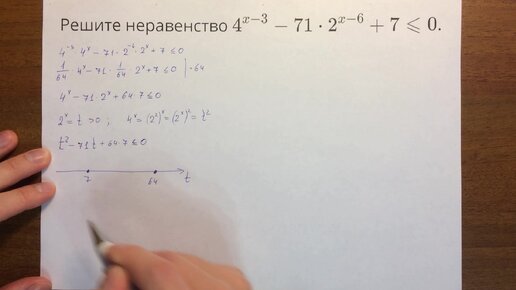 Решите неравенство 4^{x−3} − 71 · 2^{x−6} + 7 ⩽ 0.
4^{-3} · 4^x − 71 · 2^{-6} · 2^x + 7 ≤ 0
1/64 · 4^x − 71 · 1/64 · 2^x + 7 ≤ 0 | · 64
4^x − 71 · 2^x + 64 · 7 ≤ 0
2^x = t > 0 ; 4^x = (2^2)^x = (2^x)^2 = t^2
t^2 − 71t + 64 · 7 ≤ 0
7 64 t